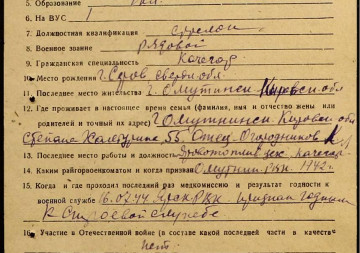 5. Образование
6. На ВУС
7. Должностная квалификация стрелок
8. Военное звание рядовой
9. Гражданская специальность
10. Место рождения г. Серов Сверд обл
11. Последнее место жительства г. Омутнинск Кировск обл
12. Где проживает в настоящее время семья (фамилия, имя и отчество жены или
родителей и точный их адрес) г. Омутнинск Кировск обл
Степана Халтурина 53. Отец Огородников
13. Последнее место работы и должность
14. Каким райгорвоенкоматом и когда призван Омутнин. РВК 1942 г
15. Когда и где проходил последний раз медкомиссию и результат годности к
военной службе 16.02.44 РВК признан годным
к строевой службе
16. Участие в Отечественной войне (в составе какой последней части в качестве
нет